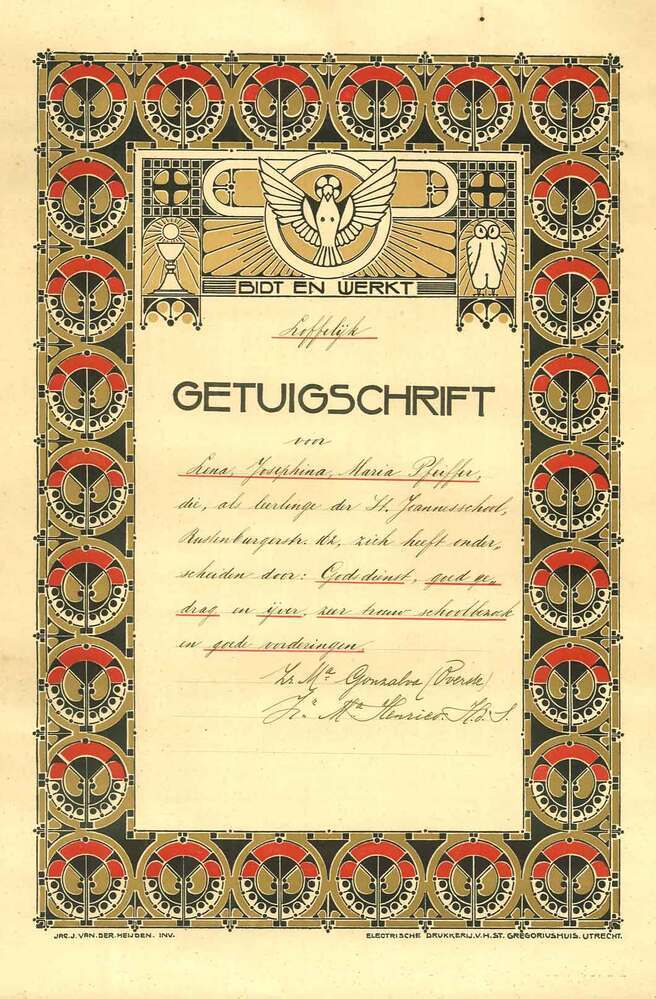 BIDT EN WERKT
Loffelijk
GETUIGSCHRIFT
voor
Lena, Josephina, Maria Pfeiffer,
die, als leerlinge der St. Jeannesschool,
Rustenburgerstr. 12, zich heeft onder„
scheiden door: Goddienst, goed ge„
drag en ijver, zeer trouw schoolbezoek
en goede vorderingen.
Zr. Ma Gonzalva (Overste)
Zr. Ma Henrico. H.d.S.
JAC. J. VAN. DER. HEIJDEN. INV.
ELECTRISCHE DRUKKERIJ. V. H. ST. GREGORIUSHUIS. UTRECHT.